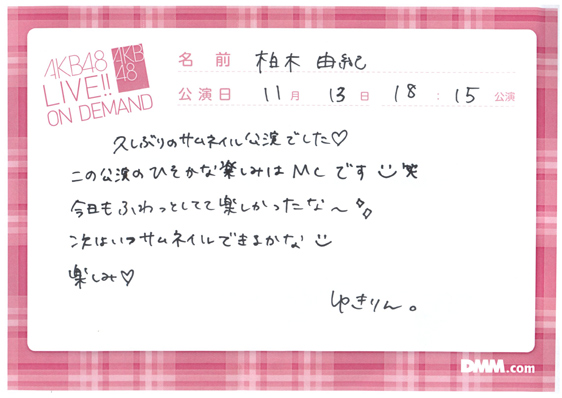 AKB48
LIVE!!
ON DEMAND
AKB
48
名前 柏木 由紀
公演日 11月 13日 18:15 公演
久しぶりのサムネイル公演でした♡
この公演のひそかな楽しみはMCです 笑
今日もふわっとしてて楽しかったな〜
次はいつサムネイルできるかな
楽しみ♡
ゆきりん。
DMM.com